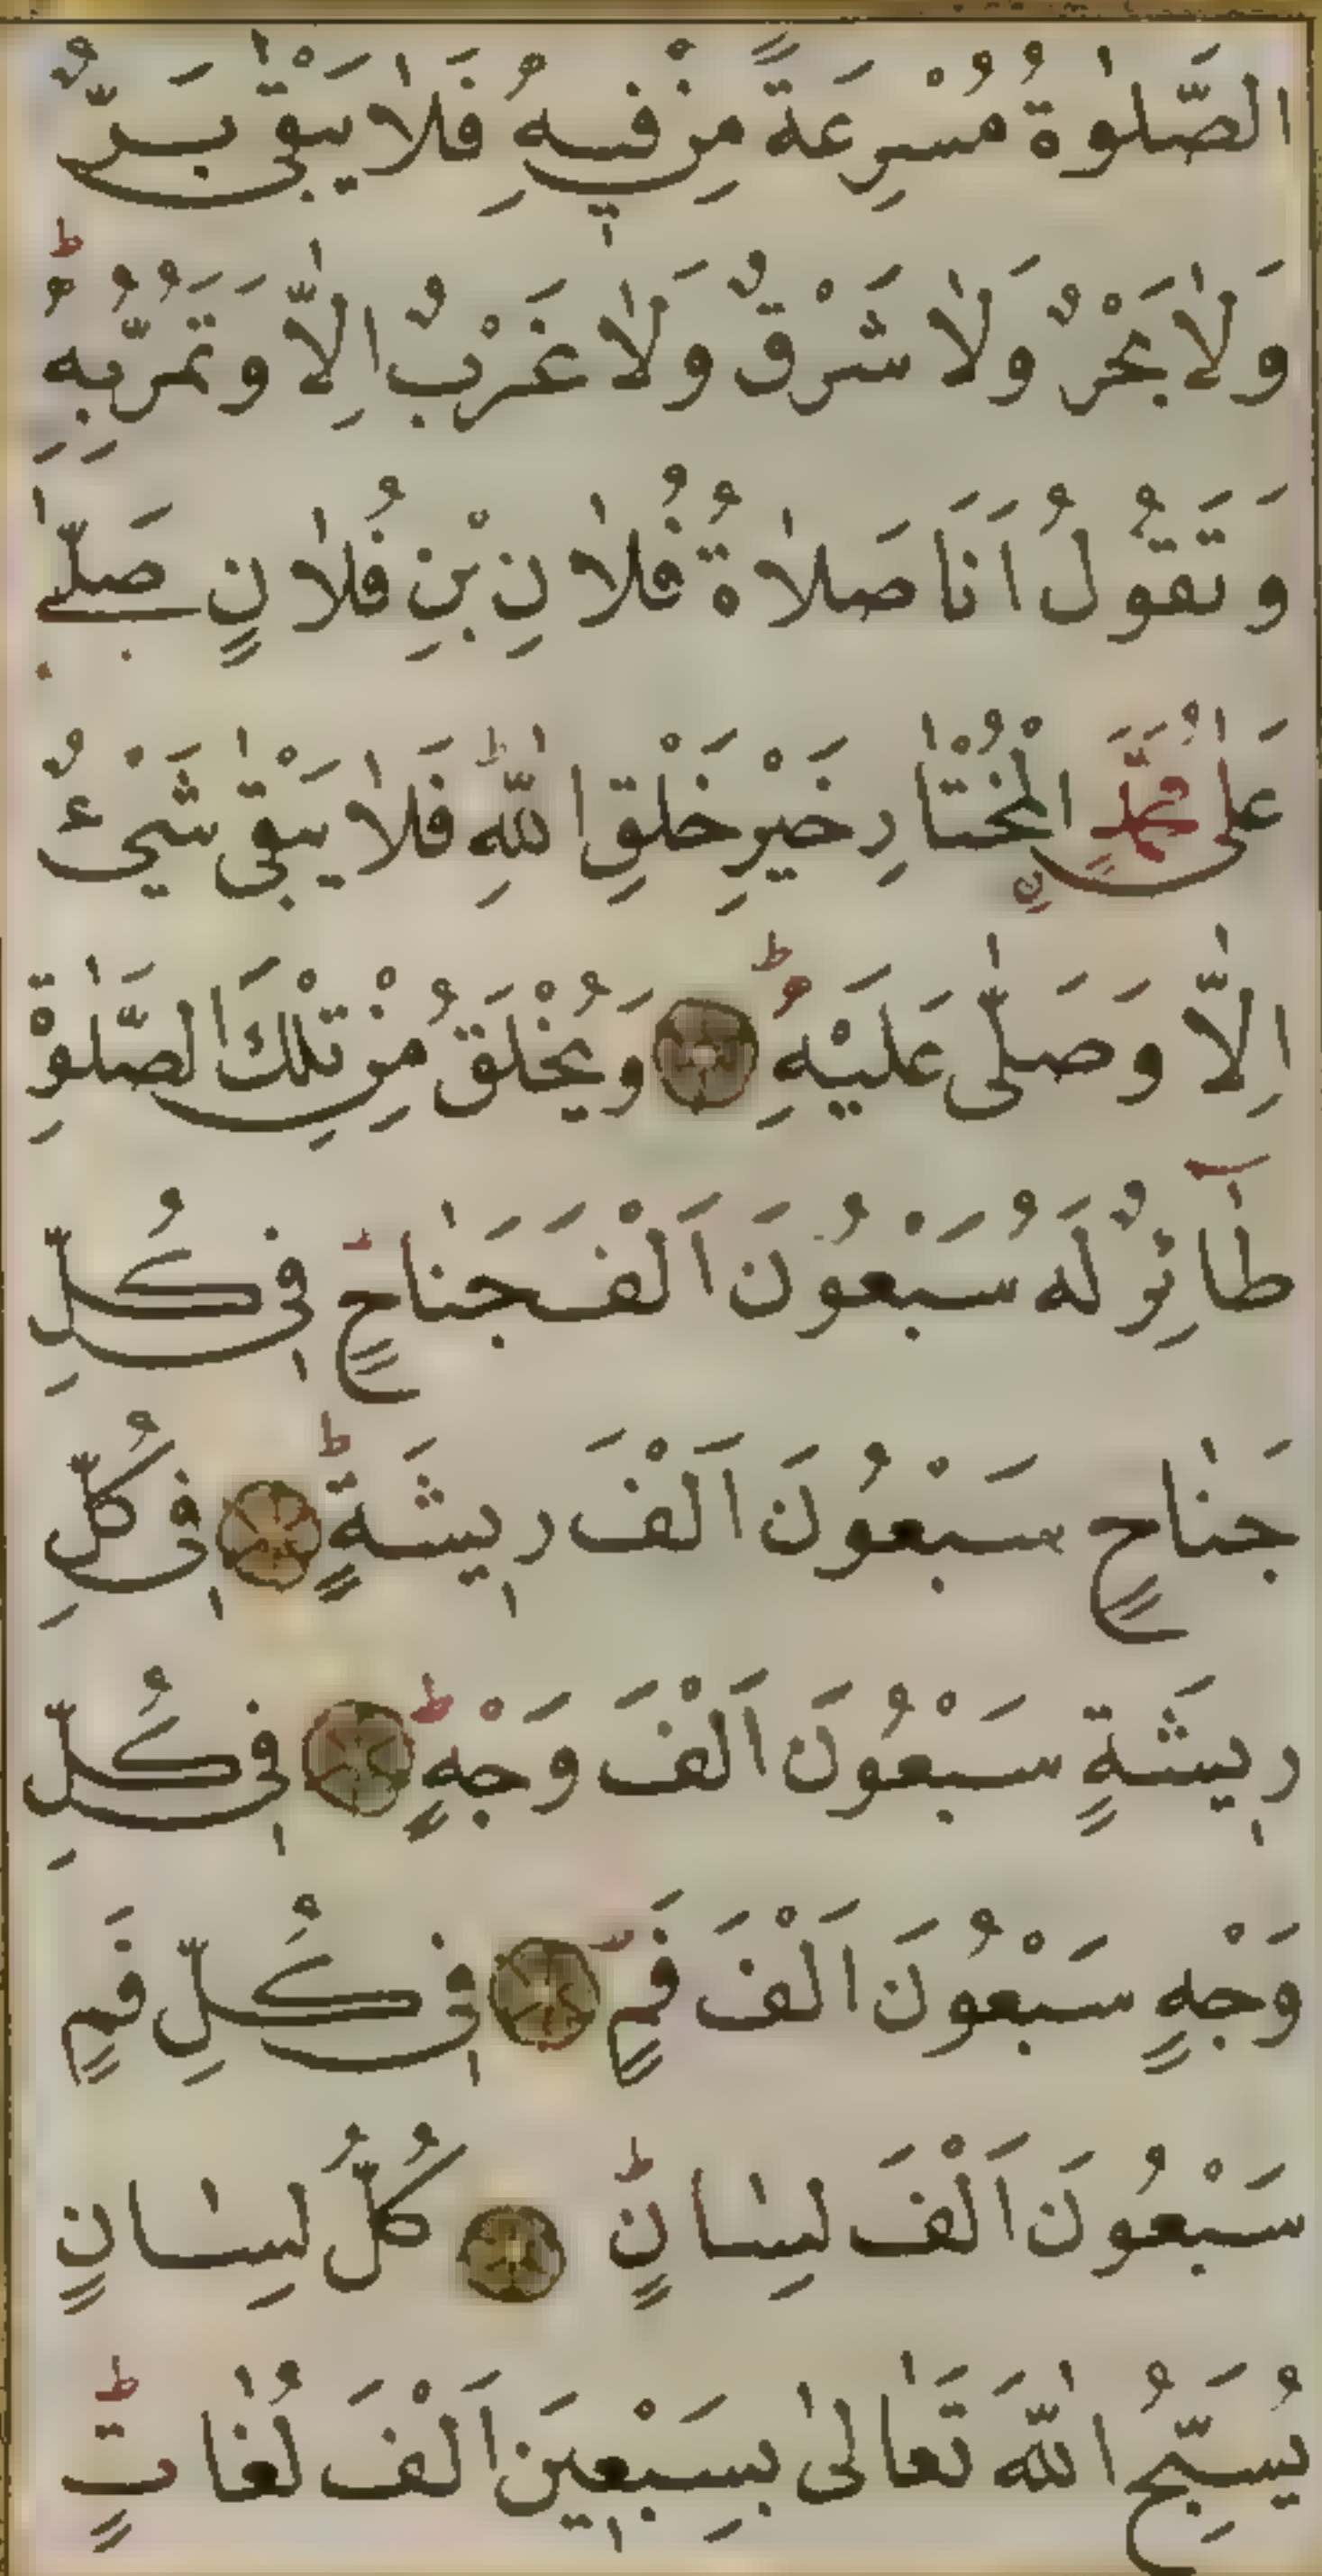 الصَّلٰوةُ مُسْرِعَةً مِنْ فِيهِ فَلَا يَبْقٰى بَرٌّ
وَلَا بَحْرٌ وَلَا شَرْقٌ وَلَا غَرْبٌ اِلَّا وَتَمُرُّ بِهِ
وَتَقُولُ اَنَا صَلَاةُ فُلَانِ بْنِ فُلَانٍ صَلّٰى
عَلٰى مُحَمَّدٍ الْمُخْتَارِ خَيْرِ خَلْقِ اللّٰهِ فَلَا يَبْقٰى شَيْءٌ
اِلَّا وَصَلّٰى عَلَيْهِ ۝ وَيُخْلَقُ مِنْ تِلْكَ الصَّلٰوةِ
طَآئِرٌ لَهُ سَبْعُونَ اَلْفَ جَنَاحٍ فِي كُلِّ
جَنَاحٍ سَبْعُونَ اَلْفَ رِيشَةٍ ۝ فِي كُلِّ
رِيشَةٍ سَبْعُونَ اَلْفَ وَجْهٍ ۝ فِي كُلِّ
وَجْهٍ سَبْعُونَ اَلْفَ فَمٍ ۝ فِي كُلِّ فَمٍ
سَبْعُونَ اَلْفَ لِسَانٍ ۝ كُلُّ لِسَانٍ
يُسَبِّحُ اللّٰهَ تَعَالٰى بِسَبْعِينَ اَلْفَ لُغَاتٍ